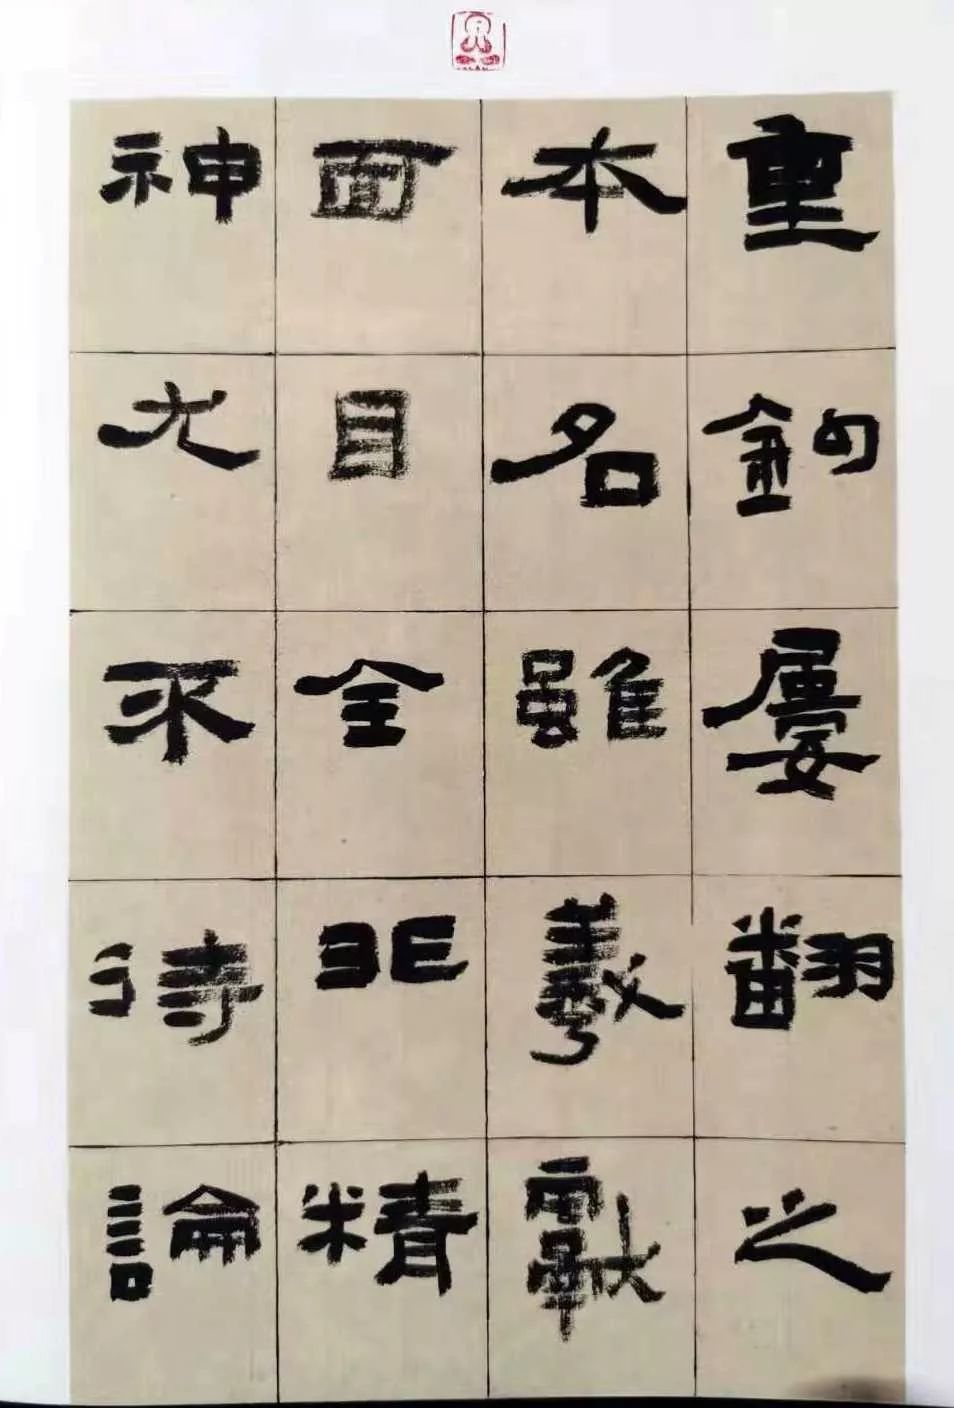 重鉤屢翻之
本名雖羲獻
面目全非精
神尤不待論